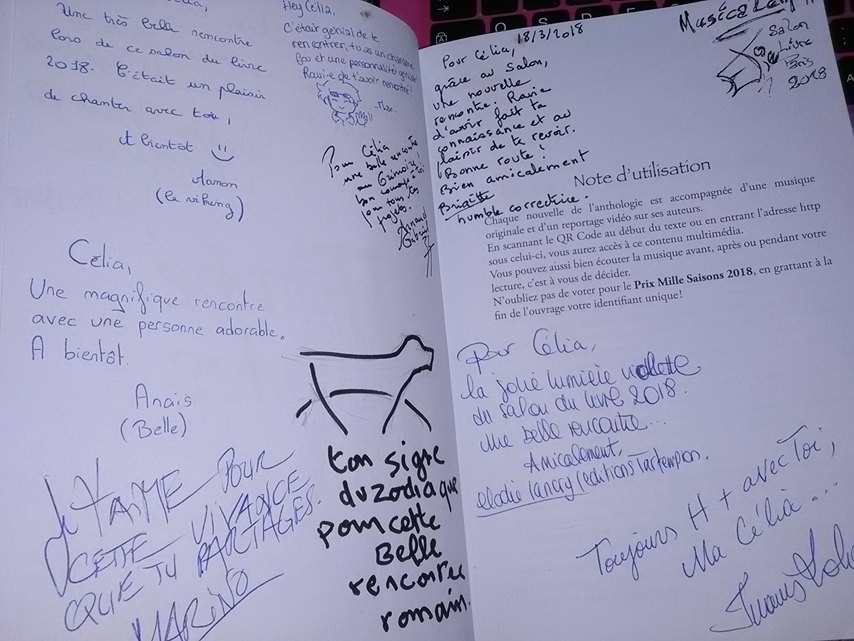 Célia,
Une très belle rencontre
lors de ce salon du livre
2018. C'était un plaisir
de chanter avec toi,
A bientôt
Manon
(la viking)
Hey Célia,
C'était génial de te
rencontrer, tu as un charisme
fou et une personnalité géniale!
Ravie de t'avoir rencontré!
Pour Célia
une belle rencontre
au Grimoire
bon courage à toi
pour tous tes
projets.
Arnaud
Gabriel
Célia,
Une magnifique rencontre
avec une personne adorable.
A bientôt.
Anaïs
(Belle)
Je t'AIME POUR
CETTE VIVANCE
QUE TU PARTAGES.
MARINO
ton signe
du zodiaque
pour cette
Belle
rencontre
romain.
18/3/2018
Pour Célia,
grâce au Salon,
une nouvelle
rencontre. Ravie
d'avoir fait ta
connaissance et au
plaisir de te revoir.
Bonne route!
Bien amicalement
Brigitte
humble correctrice.
Salon
Livre
Paris
2018
Note d'utilisation
Chaque nouvelle de l'anthologie est accompagnée d'une musique
originale et d'un reportage vidéo sur ses auteurs.
En scannant le QR Code au début du texte ou en entrant l'adresse http
sous celui-ci, vous aurez accès à ce contenu multimédia.
Vous pouvez aussi bien écouter la musique avant, après ou pendant votre
lecture, c'est à vous de décider.
N'oubliez pas de voter pour le Prix Mille Saisons 2018, en grattant à la
fin de l'ouvrage votre identifiant unique!
Pour Célia,
la jolie lumière violette
du salon du livre 2018.
Une belle rencontre...
Amicalement,
elodie Lancry (éditions Tartempion.
Toujours H + avec Toi,
Ma Célia...